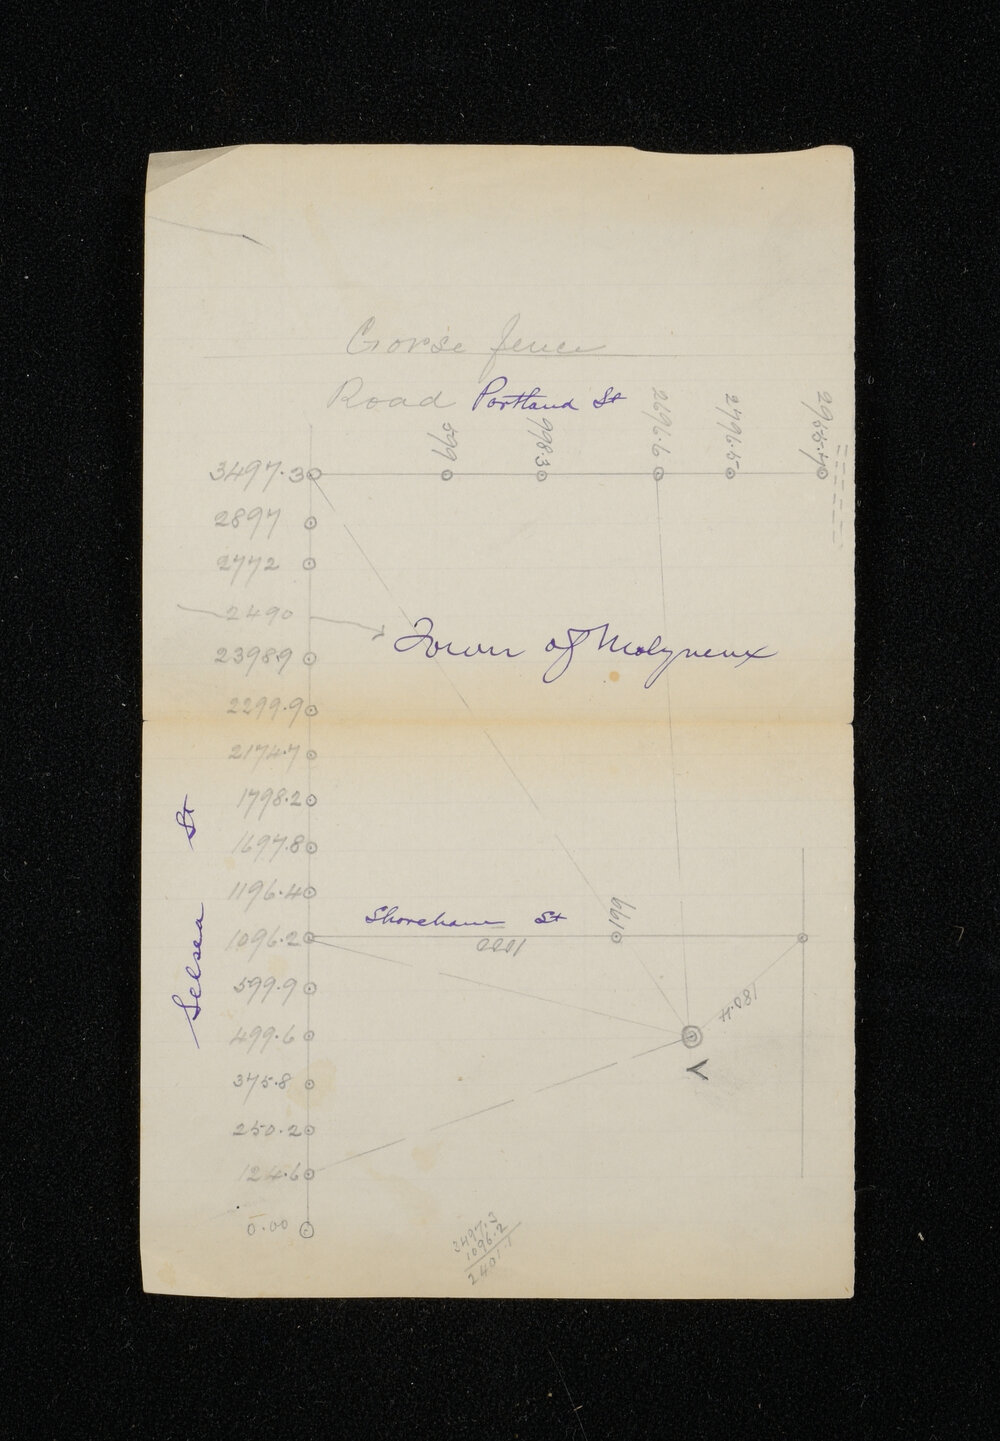 Gorse fence
Road Portland St
699
998.3
2696.6
2796.5
3497.3
2897
2772
2490
Town of Molyneux
2398.9
2299.9
2174.7
1798.2
1697.8
1196.4
Shoreham St
199
1096.2
1000
Selsea St
599.9
499.6
180.4
V
375.8
250.2
124.6
0.00
3497.3
1096.2
2401.1